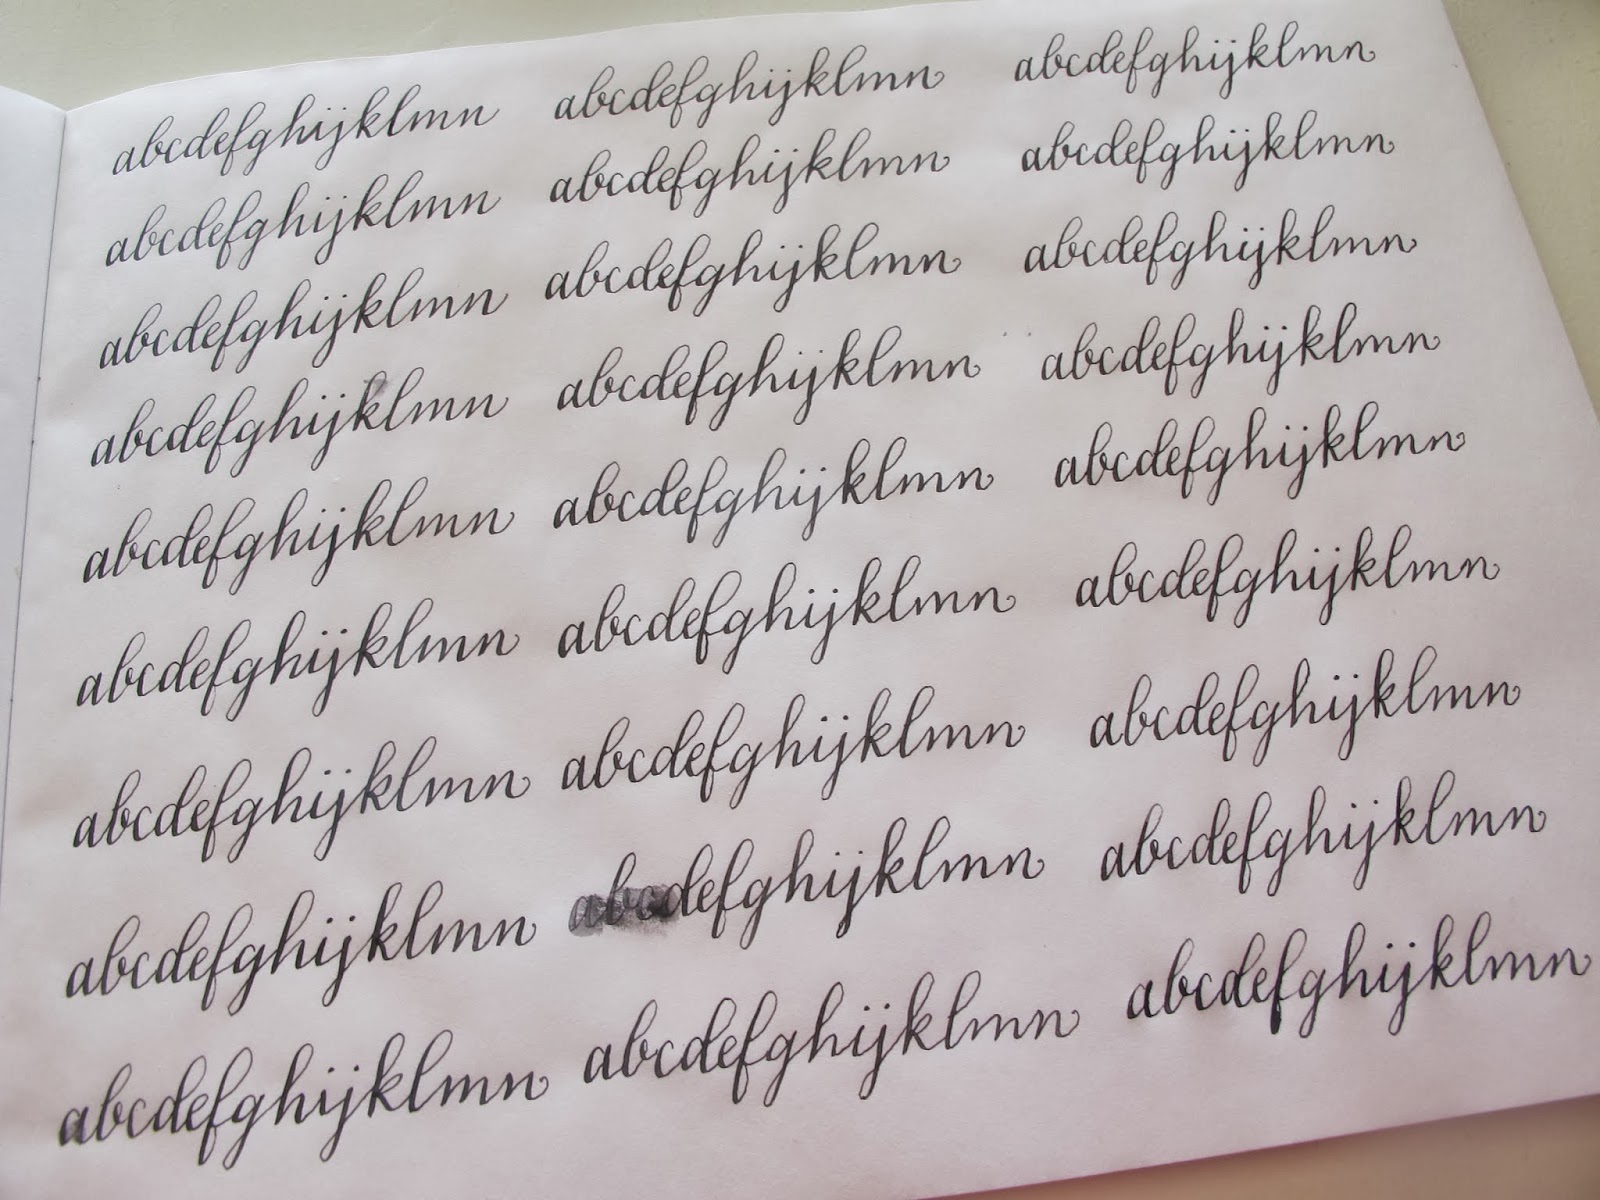 abcdefghijklmn abcdefghijklmn abcdefghijklmn
abcdefghijklmn abcdefghijklmn abcdefghijklmn
abcdefghijklmn abcdefghijklmn abcdefghijklmn
abcdefghijklmn abcdefghijklmn abcdefghijklmn
abcdefghijklmn abcdefghijklmn abcdefghijklmn
abcdefghijklmn abcdefghijklmn abcdefghijklmn
abcdefghijklmn abcdefghijklmn abcdefghijklmn
abcdefghijklmn abcdefghijklmn abcdefghijklmn
abcdefghijklmn abcdefghijklmn abcdefghijklmn